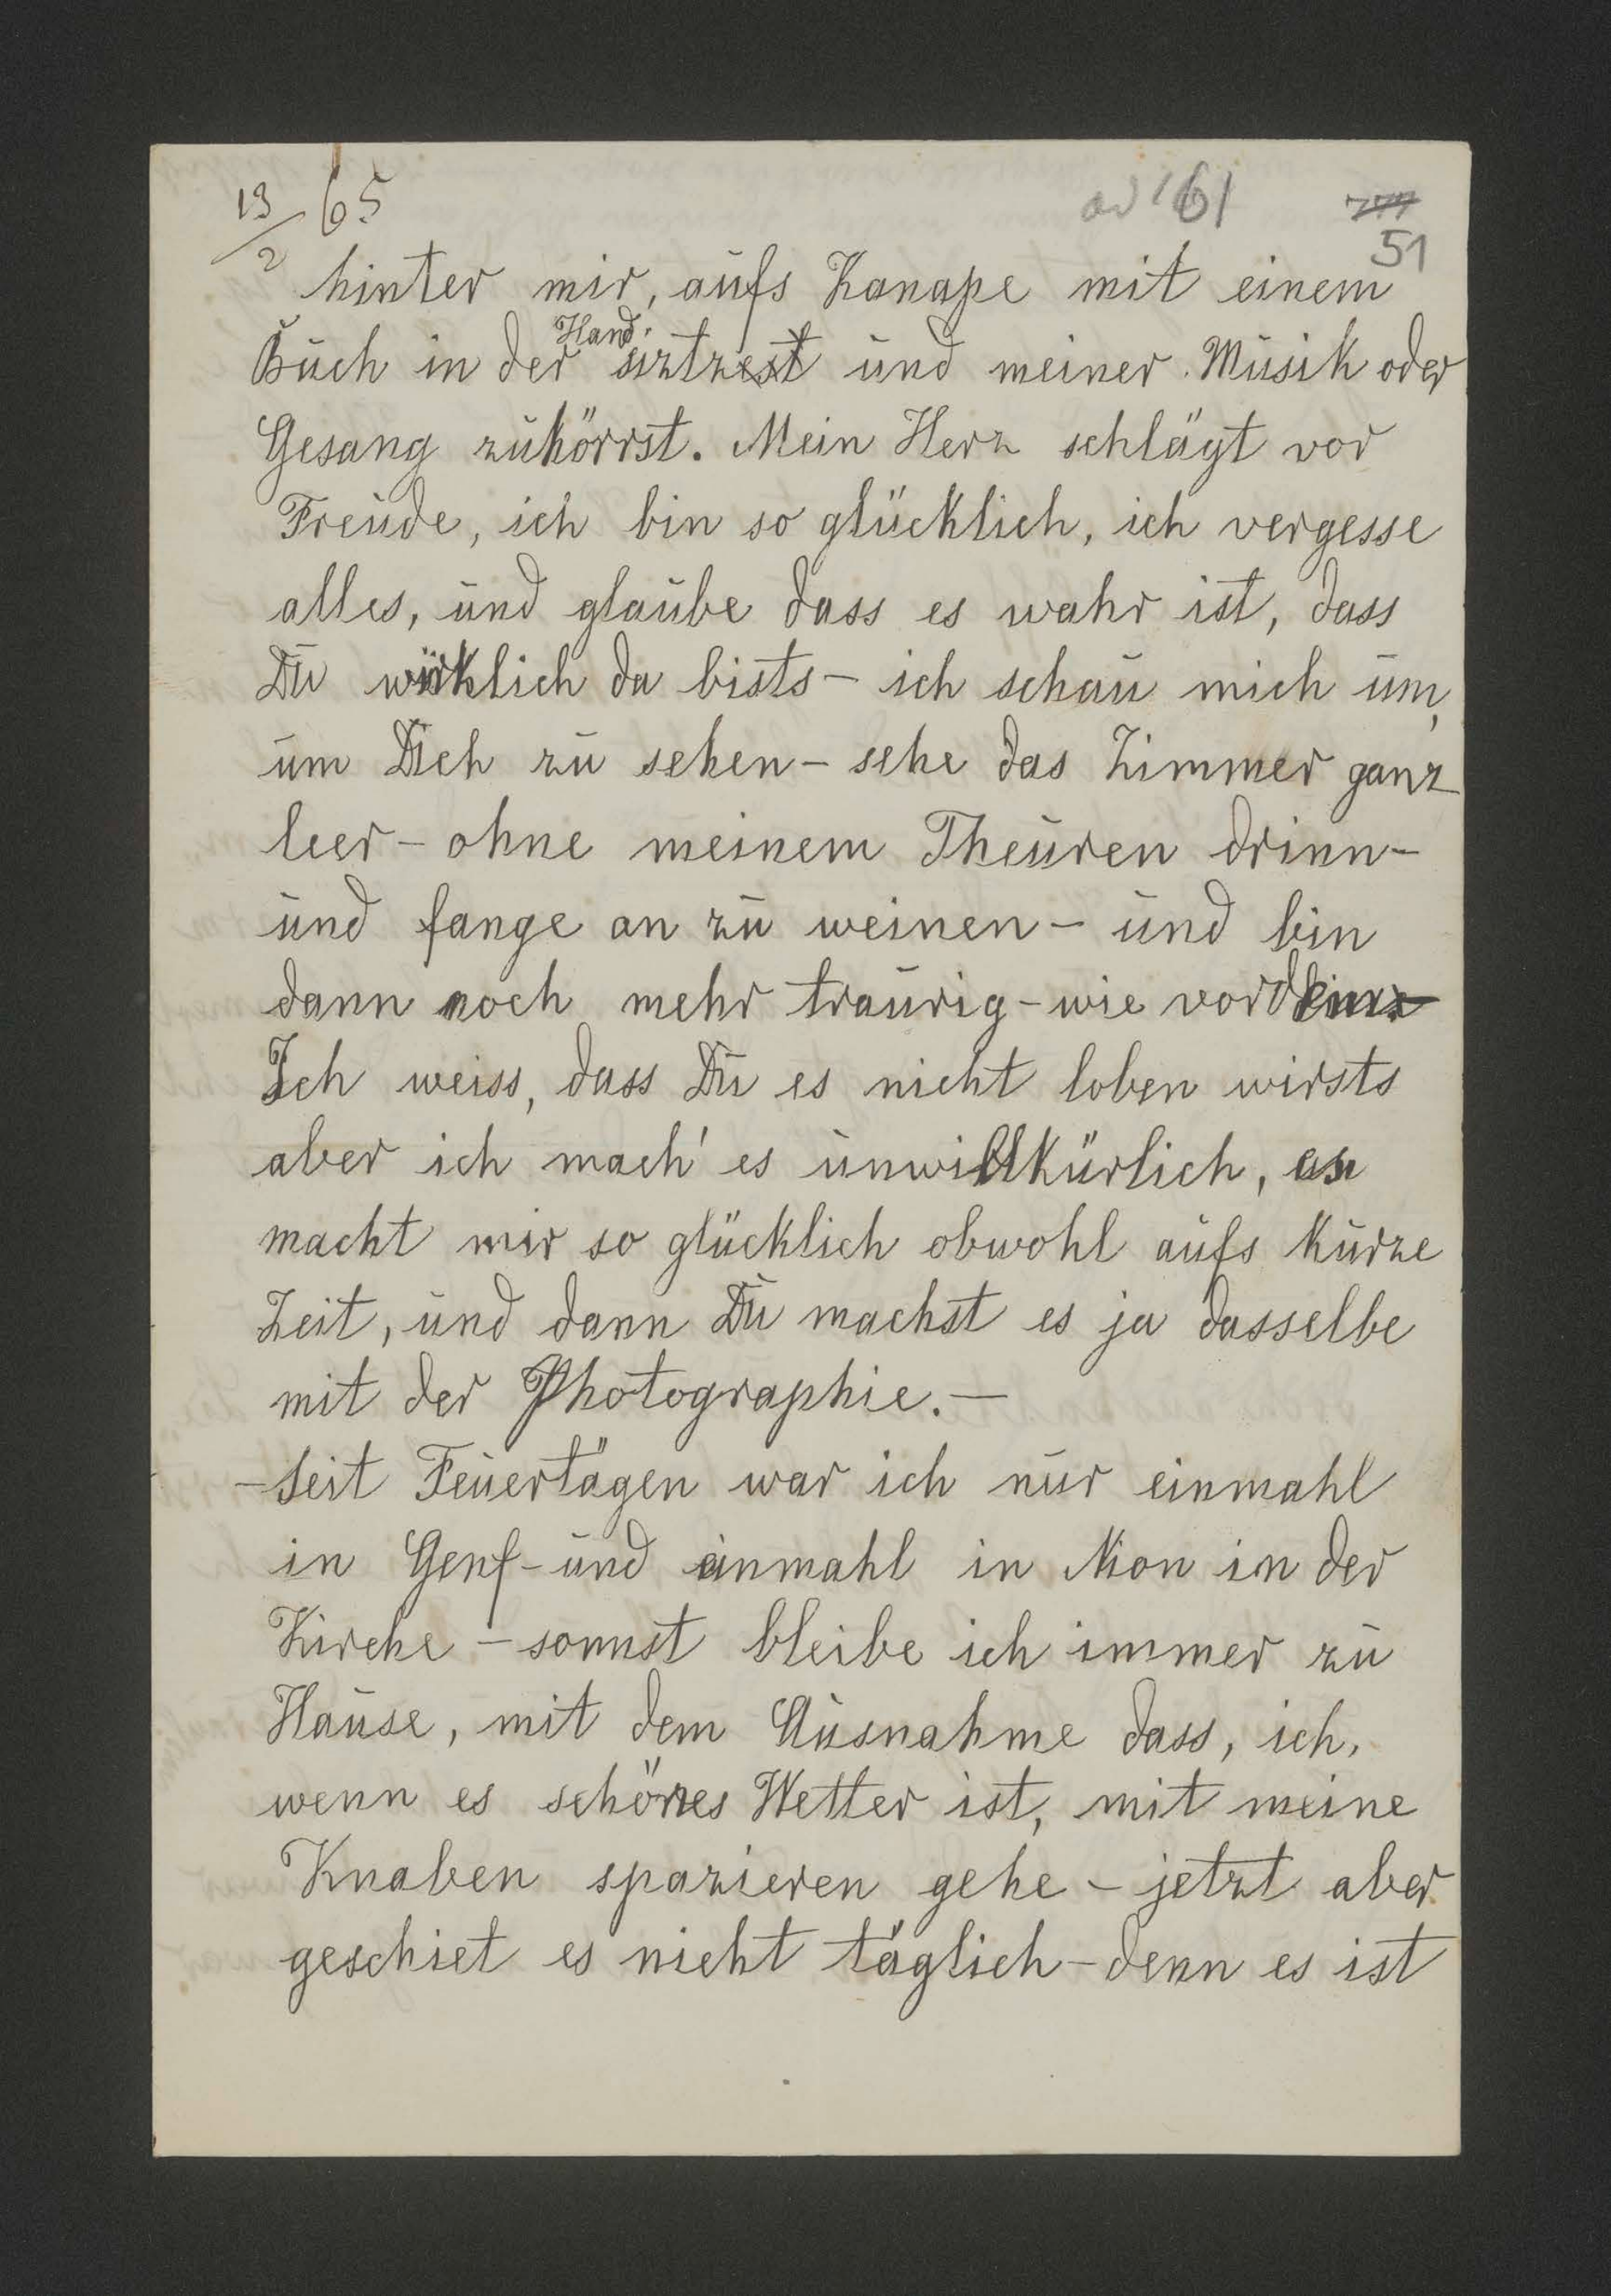 13/2 65
ad 161
51
hinter mir, aufs Kanape mit einem
Buch in der Hand sitzest und meiner Musik oder
Gesang zuhörrst. Mein Herz schlägt vor
Freude, ich bin so glücklich, ich vergesse
alles, und glaube dass es wahr ist, dass
Du würklich da bists - ich schau mich um,
um Dich zu sehen - sehe das Zimmer ganz
leer - ohne meinem Theuren drinn -
und fange an zu weinen - und bin
dann noch mehr traurig - wie vordem
Ich weiss, dass Du es nicht loben wirsts
aber ich mach' es unwillkürlich, es
macht mir so glücklich obwohl aufs kurze
Zeit, und dann Du machst es ja dasselbe
mit der Photographie. -
- Seit Feuertägen war ich nur einmahl
in Genf - und einmahl in Nion in der
Kirche - sonnst bleibe ich immer zu
Hause, mit dem Ausnahme dass, ich,
wenn es schönes Wetter ist, mit meine
Knaben spazieren gehe - jetzt aber
geschiet es nicht täglich - denn es ist